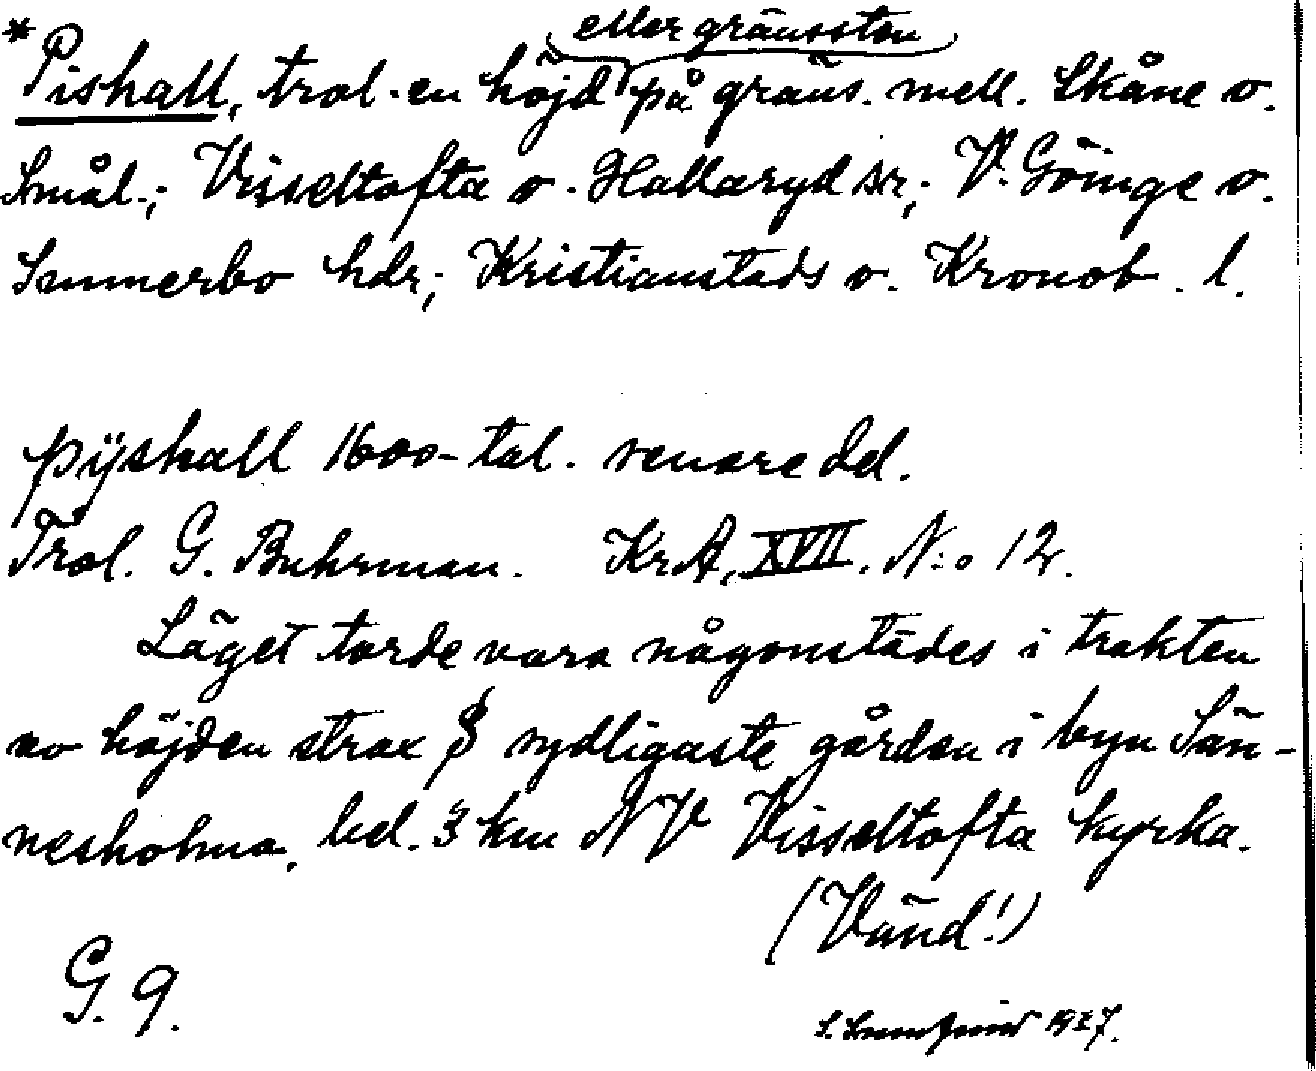 eller gränssten
*Pishall, trol. en höjd på gräns. mell. Skåne o.
Smål.; Visseltofta o. Hallaryd snr; V. Göinge o.
Sunnerbo hdr; Kristianstads o. Kronob. l.
pÿshall 1600-tal. senare del.
Trol. G. Buhrman. KrA, XVII. N:o 12.
Läget torde vara någonstädes i trakten
av höjden strax S sydligaste gården i byn Sän-
nesholma, bel. 3 km NV Visseltofta kyrka.
(Vänd!)
G. 9.
1927.